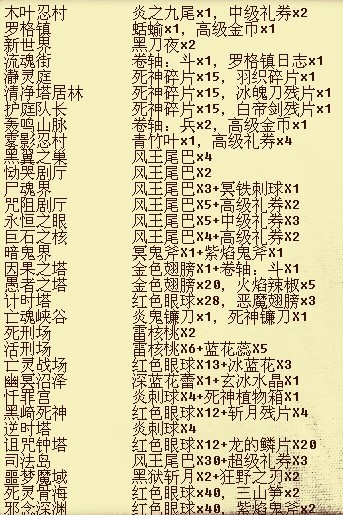 木叶忍村 炎之九尾x1，中级礼券x2
罗格镇 蛞蝓x1，高级金币x1
新世界 黑刀夜x2
流魂街 卷轴：斗x1，罗格镇日志x1
瀞灵庭 死神碎片x15，羽织碎片x1
清净塔居林 死神碎片x15，冰魄刀残片x1
护庭队长 死神碎片x15，白帝剑残片x1
轰鸣山脉 卷轴：兵x2，高级金币x1
雾影忍村 青竹叶x1，高级礼券x4
黑翼之巢 风王尾巴x4
恸哭剧厅 风王尾巴X2
尸魂界 风王尾巴X3+冥铁刺球X1
咒阻剧厅 风王尾巴X5+高级礼券X2
永恒之眼 风王尾巴X5+中级礼券X3
巨石之核 风王尾巴X4+高级礼券x2
暗鬼界 冥鬼斧X1+紫焰鬼斧X1
因果之塔 金色翅膀X1+卷轴：斗X1
愚者之塔 金色翅膀x20，火焰辣椒x5
计时塔 红色眼球x28，恶魔翅膀x3
亡魂峡谷 炎鬼镰刀x1，死神镰刀X1
死刑场 雷核桃X2
活刑场 雷核桃X6+蓝花蕊X5
亡灵战场 红色眼球X13+冰蓝花X3
幽冥沼泽 深蓝花蕾X1+玄冰水晶X1
忏罪宫 炎刺球X4+死神植物箱X1
黑崎死神 红色眼球X12+斩月残片X4
逆时塔 炎刺球X4
诅咒钟塔 红色眼球X12+龙的鳞片X20
司法岛 风王尾巴X30+超级礼券X3
噩梦魔域 黑狱斩月X2+狂野之刃X2
死灵骨海 红色眼球x40，三山笋x2
邪念深渊 红色眼球x40，紫焰鬼斧x2